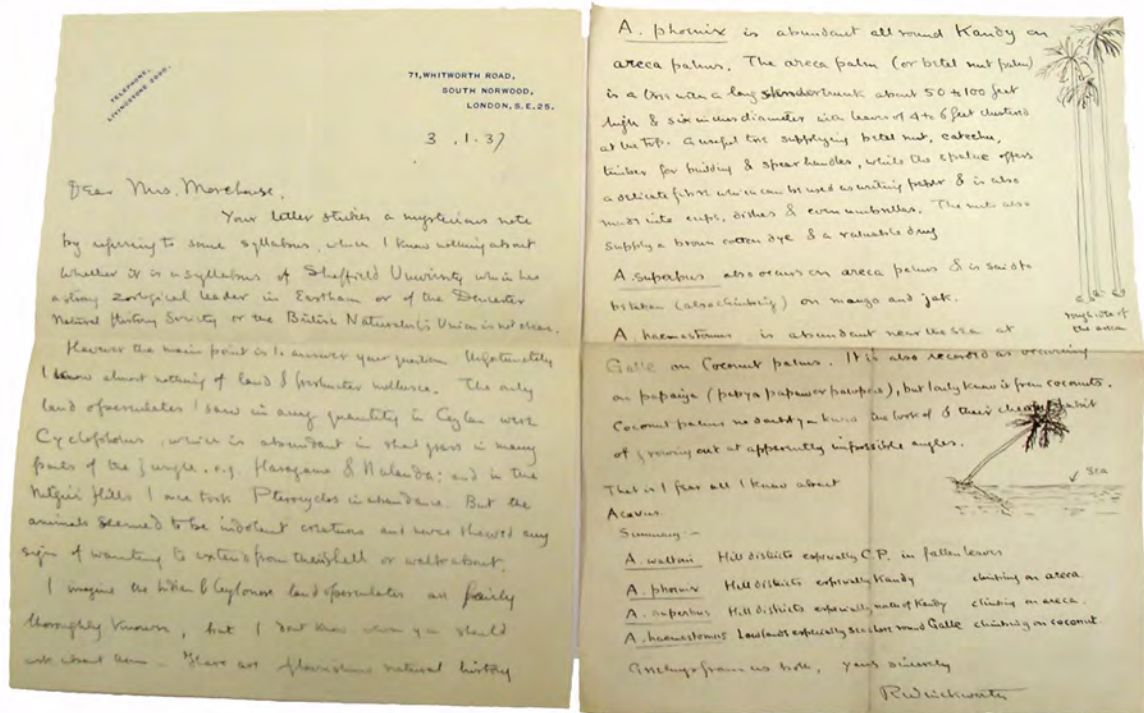 TELEPHONE,
LIVINGSTONE 2000.
71, WHITWORTH ROAD,
SOUTH NORWOOD,
LONDON, S.E.25.
3 . 1. 37
Dear Mrs. Morehouse,
Your letter strikes a mysterious note
by referring to some syllabus, which I know nothing about
Whether it is a syllabus of Sheffield University which has
a strong zoological leader in Eastham or of the
Natural History Society or the British Naturalists Union is not clear.
However the main point is to answer your question. Unfortunately
I know almost nothing of land & freshwater mollusca. The only
land operculates I saw in any quantity in Ceylon were
Cyclophorus, which is abundant in short grass in many
parts of the jungle. e.g. & Nalanda; and in the
Nilgiri Hills I once took Pterocyclos in abundance. But the
animals seemed to be indolent creatures and never shewed any
sign of wanting to extend from their shell or walk about.
I imagine the Indian & Ceylonese land operculates are fairly
thoroughly known, but I dont know whom you should
ask about them. There are flourishing natural history
A. phoenix is abundant all round Kandy on
areca palms. The areca palm (or betel nut palm)
is a tree with a long slender trunk about 50 to 100 feet
high & six inches diameter with leaves of 4 to 6 feet clustered
at the top. A useful tree supplying betel nut, catechu,
timber for building & spear handles, while the spathe offers
a delicate fibre which can be used as writing paper & is also
made into cups, dishes & even umbrellas. The nuts also
supply a brown cotton dye & a valuable drug
A. superbus also occurs on areca palms & is said to
be taken (also climbing) on mango and jak.
rough idea of
the areca
A. haemastomus is abundant near the sea at
Galle on Coconut palms. It is also recorded as occurring
on papaiya (papya papawer pawpaw), but I only know it from coconuts.
Coconut palms no doubt you know the look of & their habit
of growing out at apparently impossible angles.
Sea
That is I fear all I know about
Acavus.
Summary:-
A. waltoni Hill districts especially C.P. in fallen leaves
A. phoenix Hill districts especially Kandy climbing on areca
A. superbus Hill districts especially north of Kandy climbing on areca.
A. haemastomus Lowlands especially sea shore round Galle climbing on coconut.
Greetings from us both, yours sincerely
R Winckworth